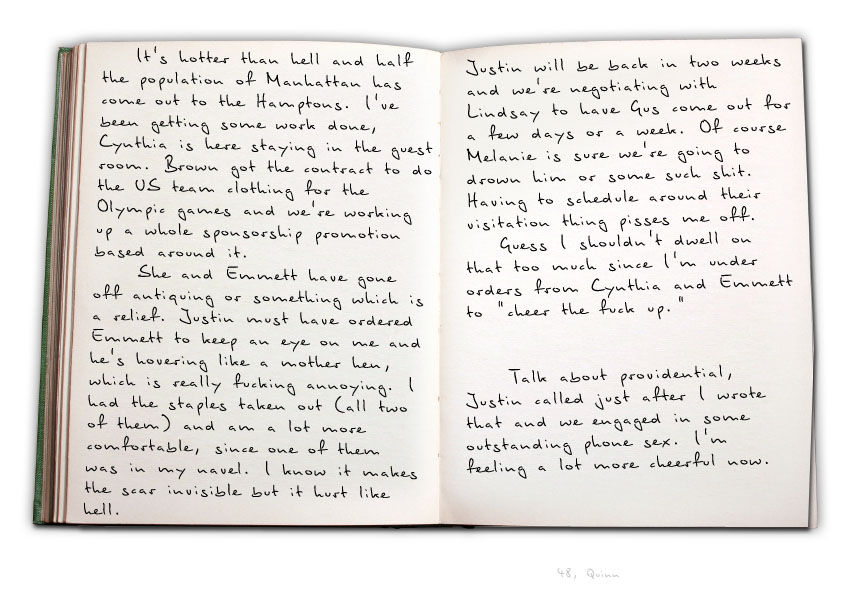 It's hotter than hell and half
the population of Manhattan has
come out to the Hamptons. I've
been getting some work done,
Cynthia is here staying in the guest
room. Brown got the contract to do
the US team clothing for the
Olympic games and we're working
up a whole sponsorship promotion
based around it.
She and Emmett have gone
off antiquing or something which is
a relief. Justin must have ordered
Emmett to keep an eye on me and
he's hovering like a mother hen,
which is really fucking annoying. I
had the staples taken out (all two
of them) and am a lot more
comfortable, since one of them
was in my navel. I know it makes
the scar invisible but it hurt like
hell.
Justin will be back in two weeks
and we're negotiating with
Lindsay to have Gus come out for
a few days or a week. Of course
Melanie is sure we're going to
drown him or some such shit.
Having to schedule around their
visitation thing pisses me off.
Guess I shouldn't dwell on
that too much since I'm under
orders from Cynthia and Emmett
to "cheer the fuck up."
Talk about providential,
Justin called just after I wrote
that and we engaged in some
outstanding phone sex. I'm
feeling a lot more cheerful now.
48, Quinn